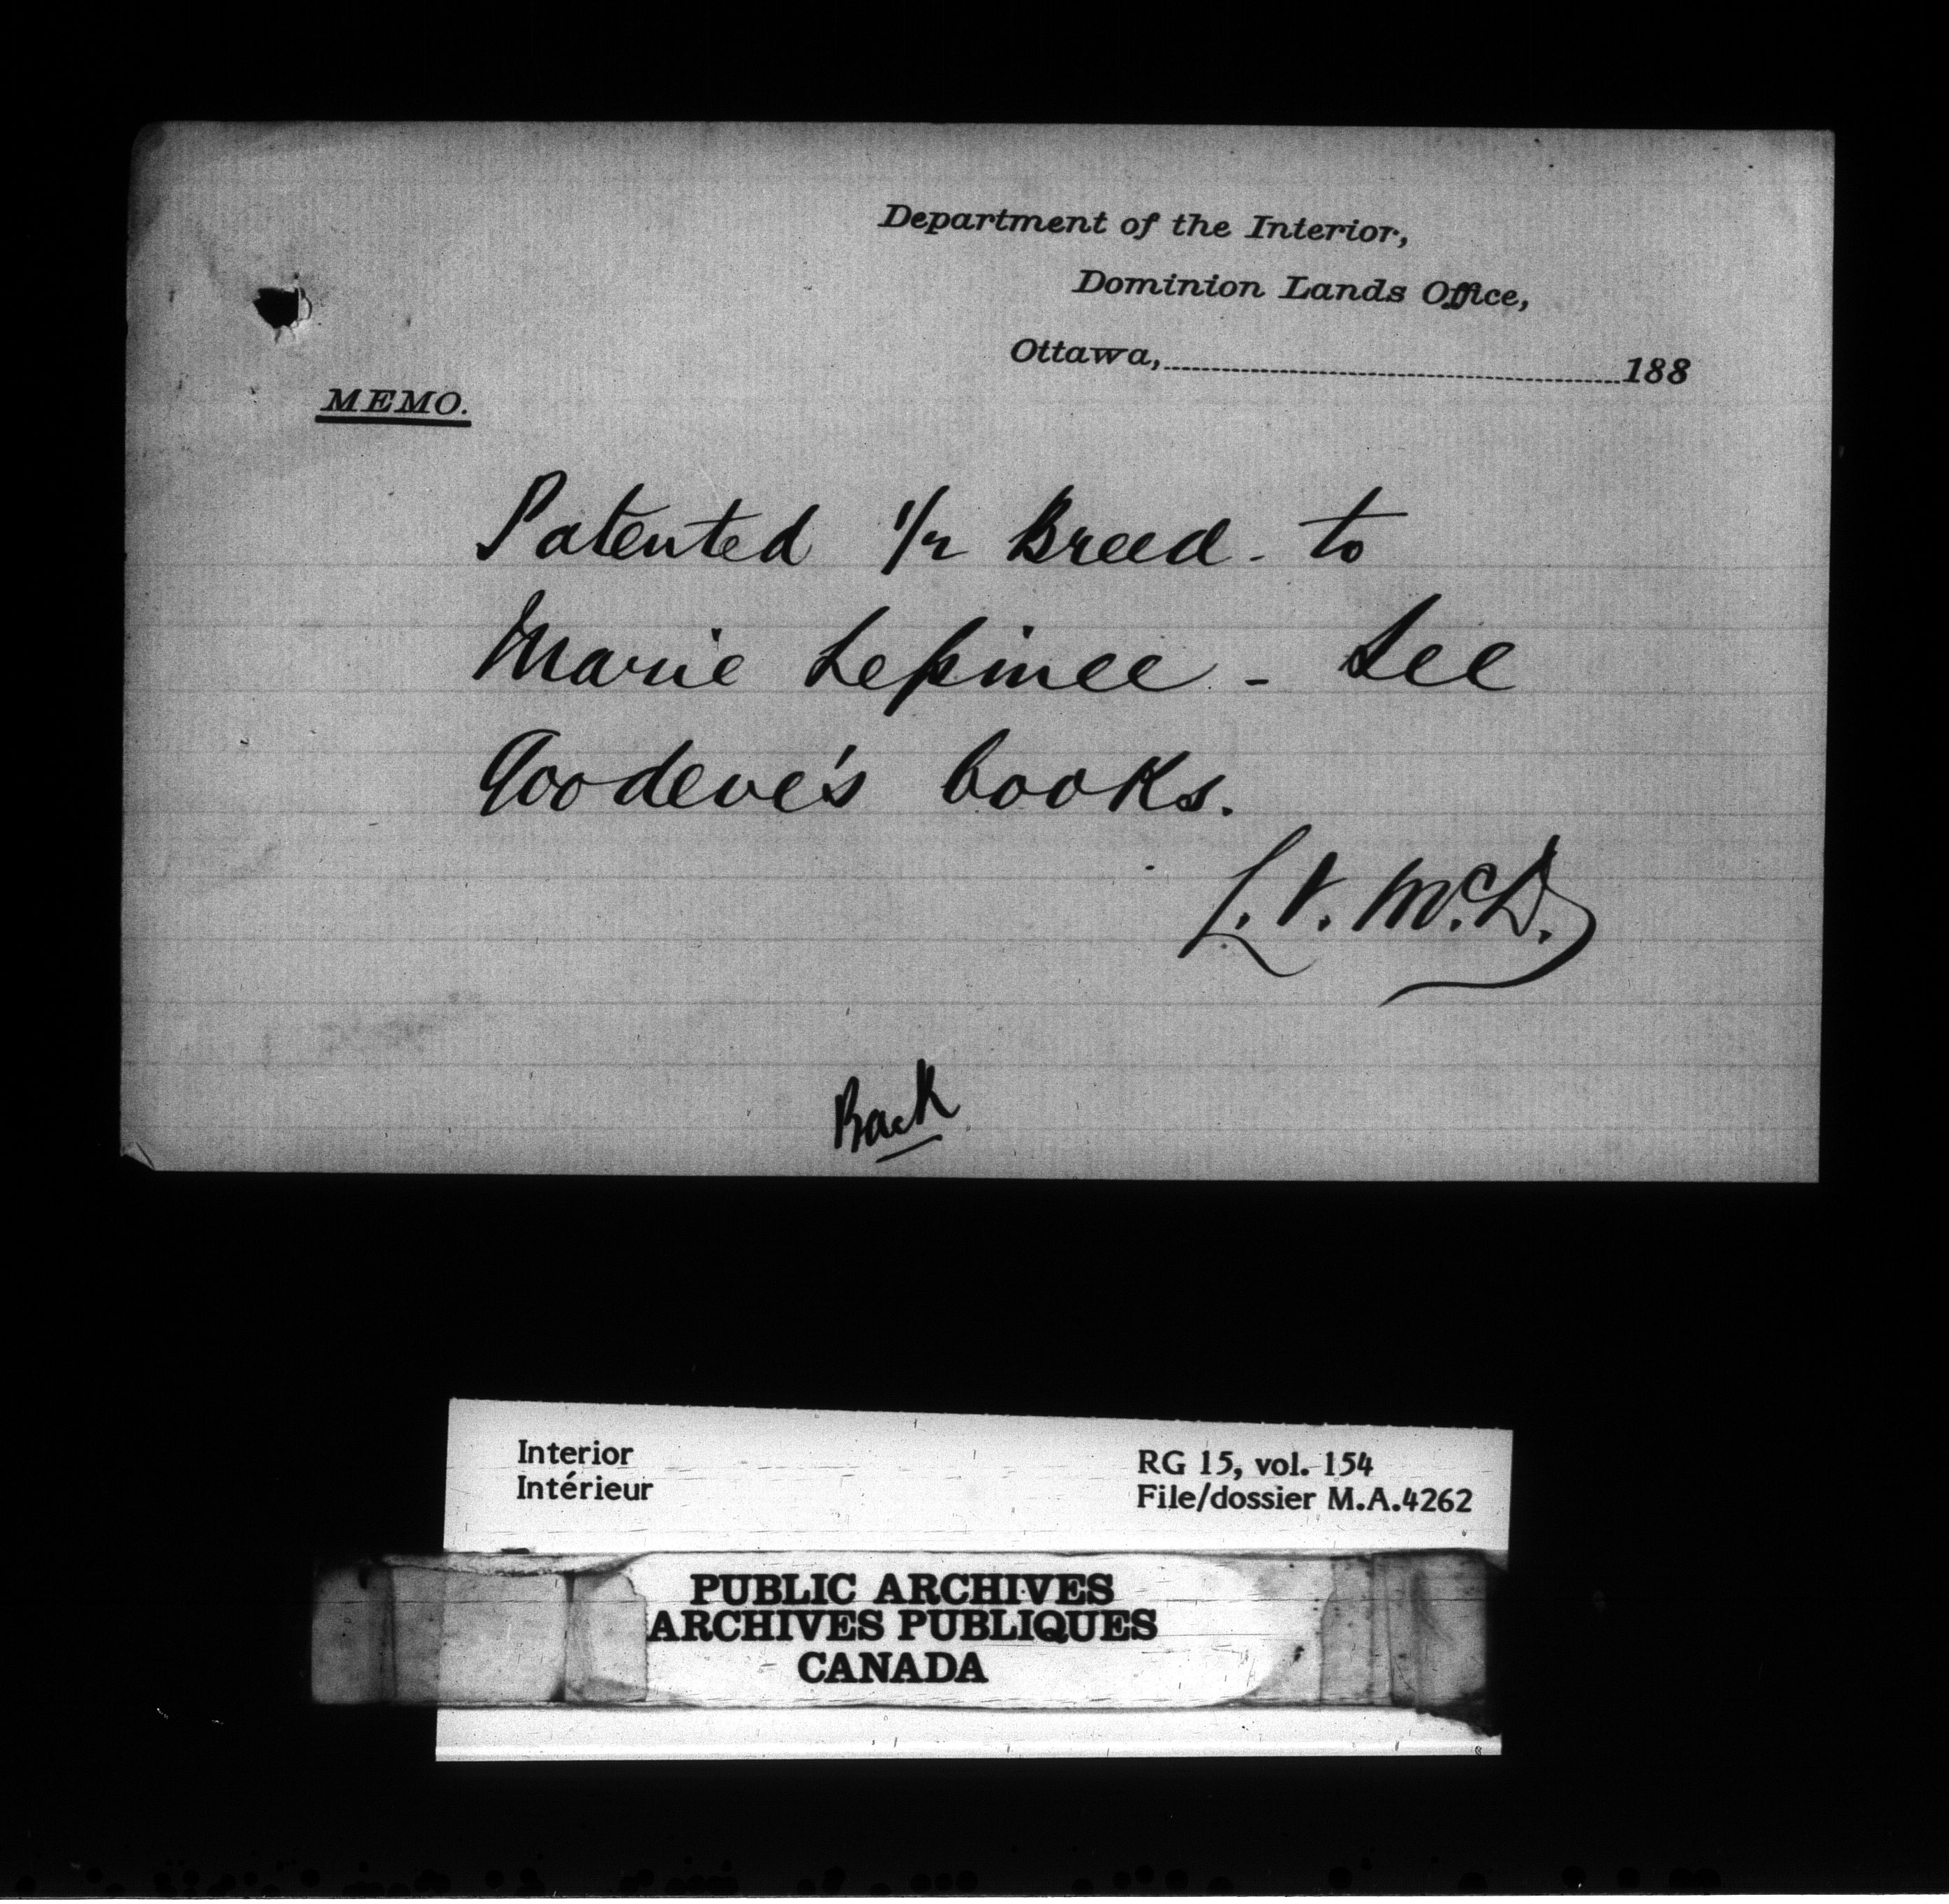 Department of the Interior,
Dominion Lands Office,
Ottawa, 188
MEMO.
Patented 1/2 Breed - to
Marie Lepinee - See
Goodeve's books.
L. V. McD.
Back
Interior
Intérieur
RG 15, vol. 154
File/dossier M.A.4262
PUBLIC ARCHIVES
ARCHIVES PUBLIQUES
CANADA